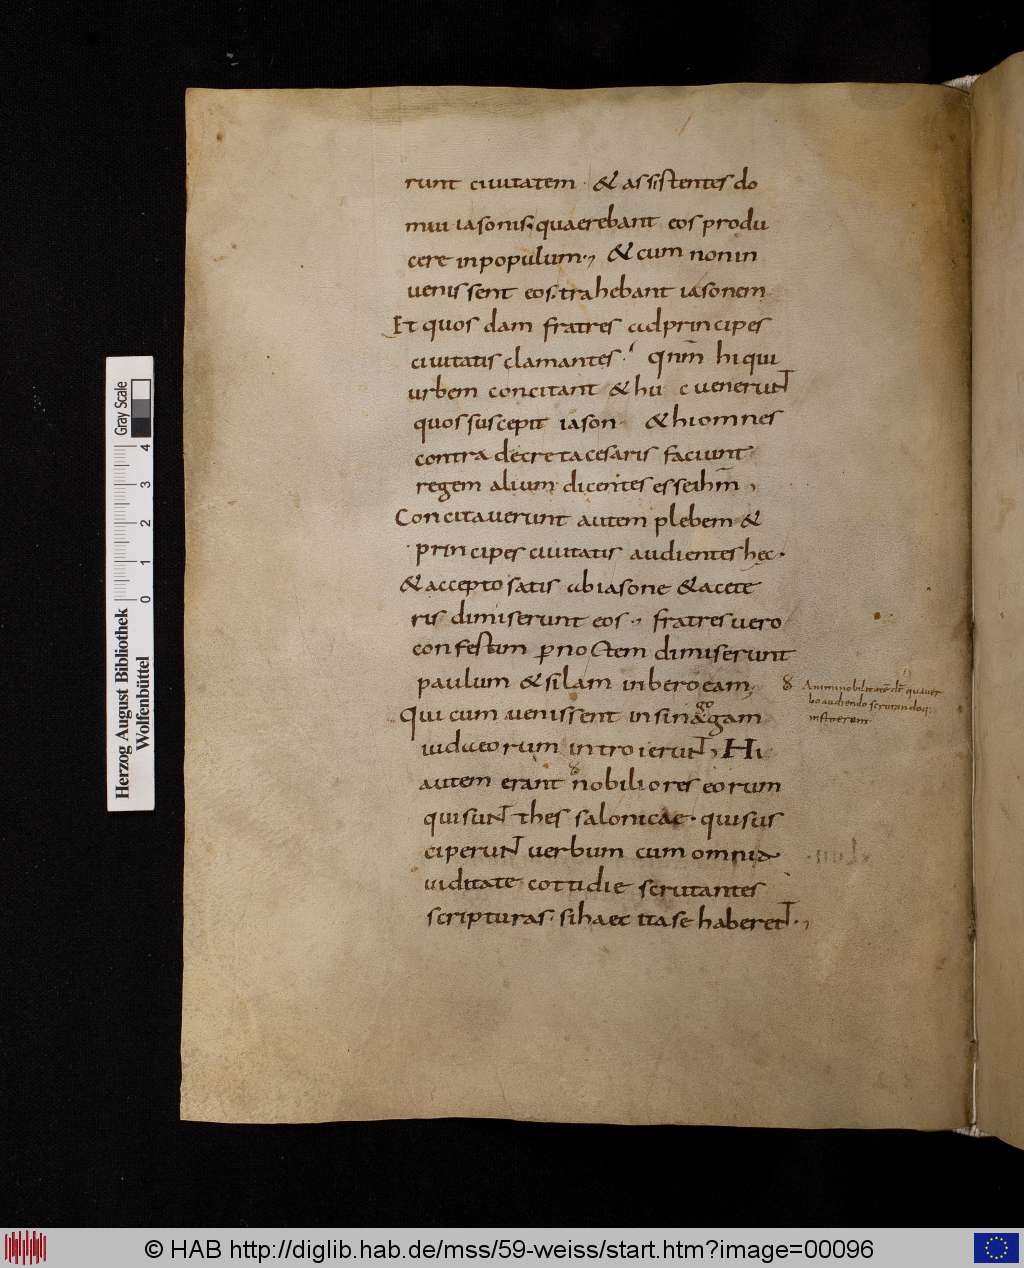 runt ciuitatem · & assistentes do
mui iasonis · quaerebant eos produ
cere inpopulum ·, & cum non in
uenissent eos · trahebant iasonem
Et quos dam fratres ad principes
ciuitatis clamantes · qnm̄ hi qui
urbem concitant & huc uenerunt
quos suscepit iason & hi omnes
contra decreta cesaris faciunt
regem alium dicentes esse ihm̄ ,
Concitauerunt autem plebem &
principes ciuitatis audientes hęc ·
& accepto satis ab iasone & acete
ris dimiserunt eos ·, fratres uero
confestim p noctem dimiserunt
paulum & silam in beroeam,
Animi nobilitatē
bo audiendo scrutandoq;
Qui cum uenissent in sinagogam
iudaeorum introierunt, Hi
autem erant nobiliores eorum
qui sunt thessalonicae · qui sus
ciperunt uerbum cum omni a
uiditate cottidie scrutantes
scripturas · si haec ita se haberent ·,
Herzog August Bibliothek
Wolfenbüttel
0 1 2 3 4
Gray Scale
© HAB http://diglib.hab.de/mss/59-weiss/start.htm?image=00096